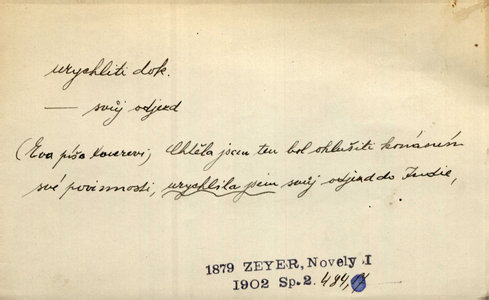 urychliti dok.
— svůj odjezd
(Eva píše Xaverovi) Chtěla jsem ten bol ohlušiti konáním
své povinnosti, urychlila jsem svůj odjezd do Indie,
1879 ZEYER, Novely I
1902 Sp. 2. 484,